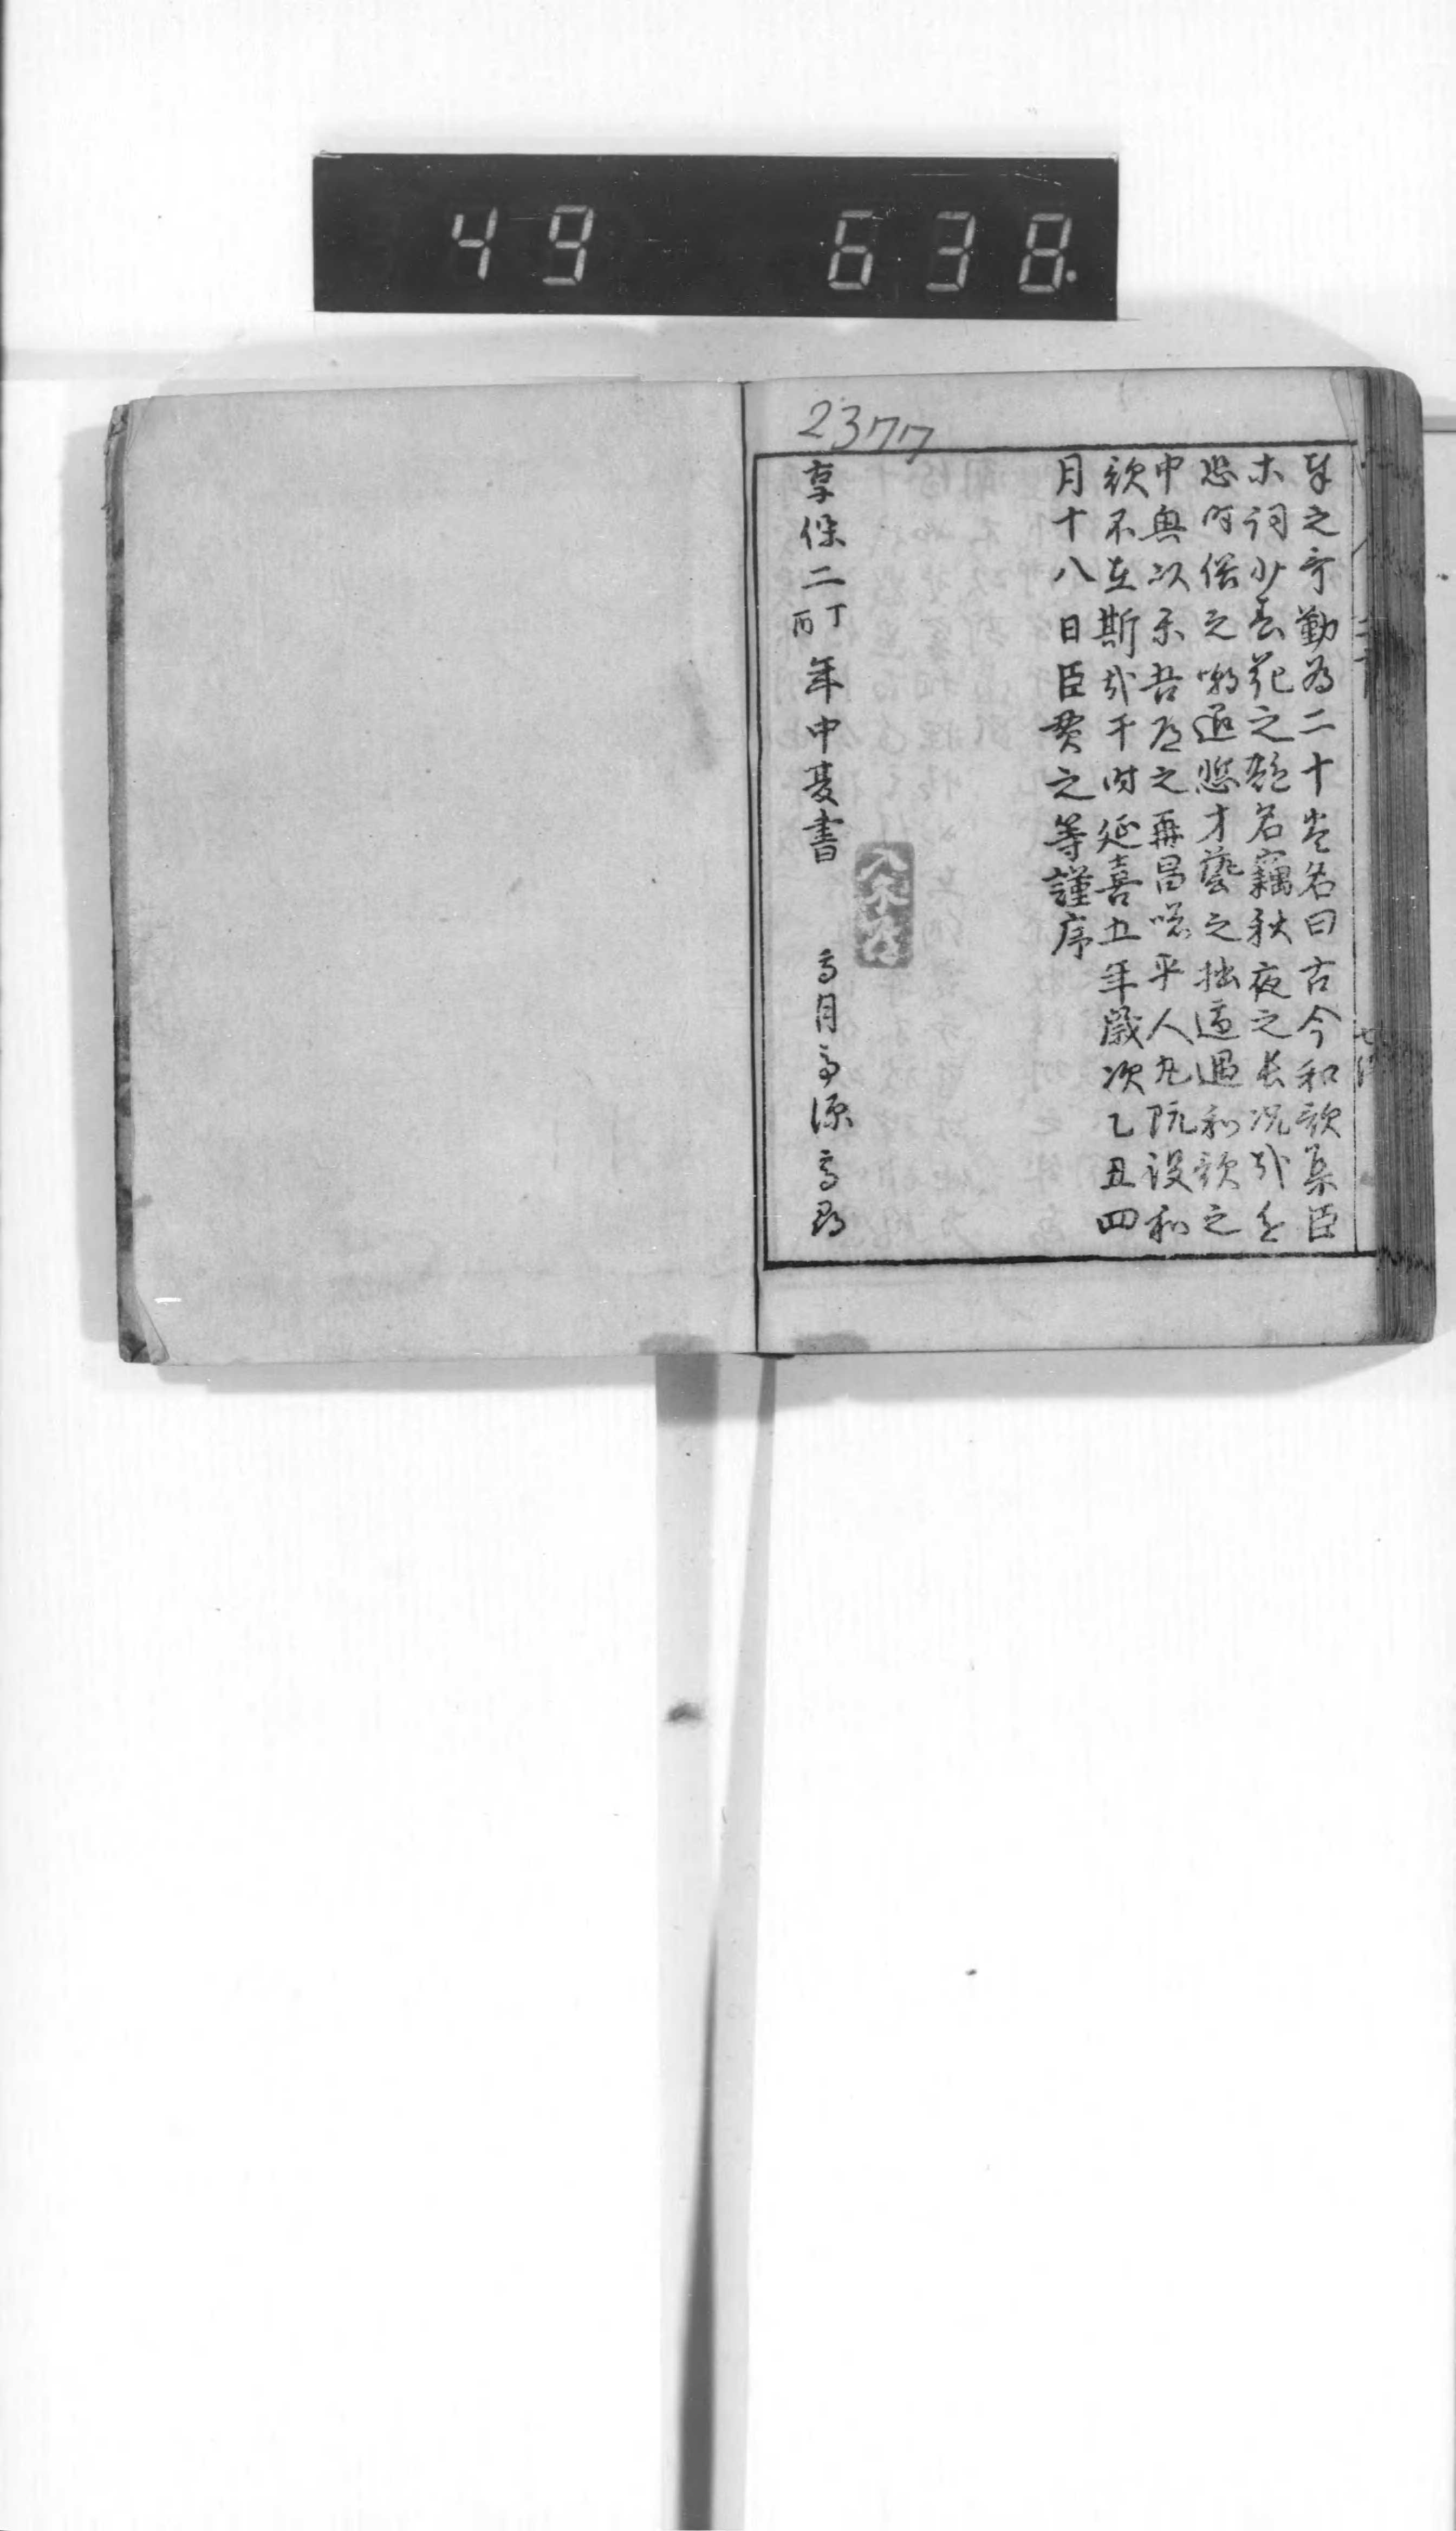 49 638.
2377
奉之哥勤為二十巻名曰古今和歌集臣
木詞少春花之艶名竊秋夜之長况哉進
恐時俗之嘲退慙才藝之拙適遇和歌之
中興以示吾道之再昌嗟乎人丸既没和
歌不在斯哉于時延喜五年歳次乙丑四
月十八日臣貫之等謹序
享保二丁酉年中夏書 高月